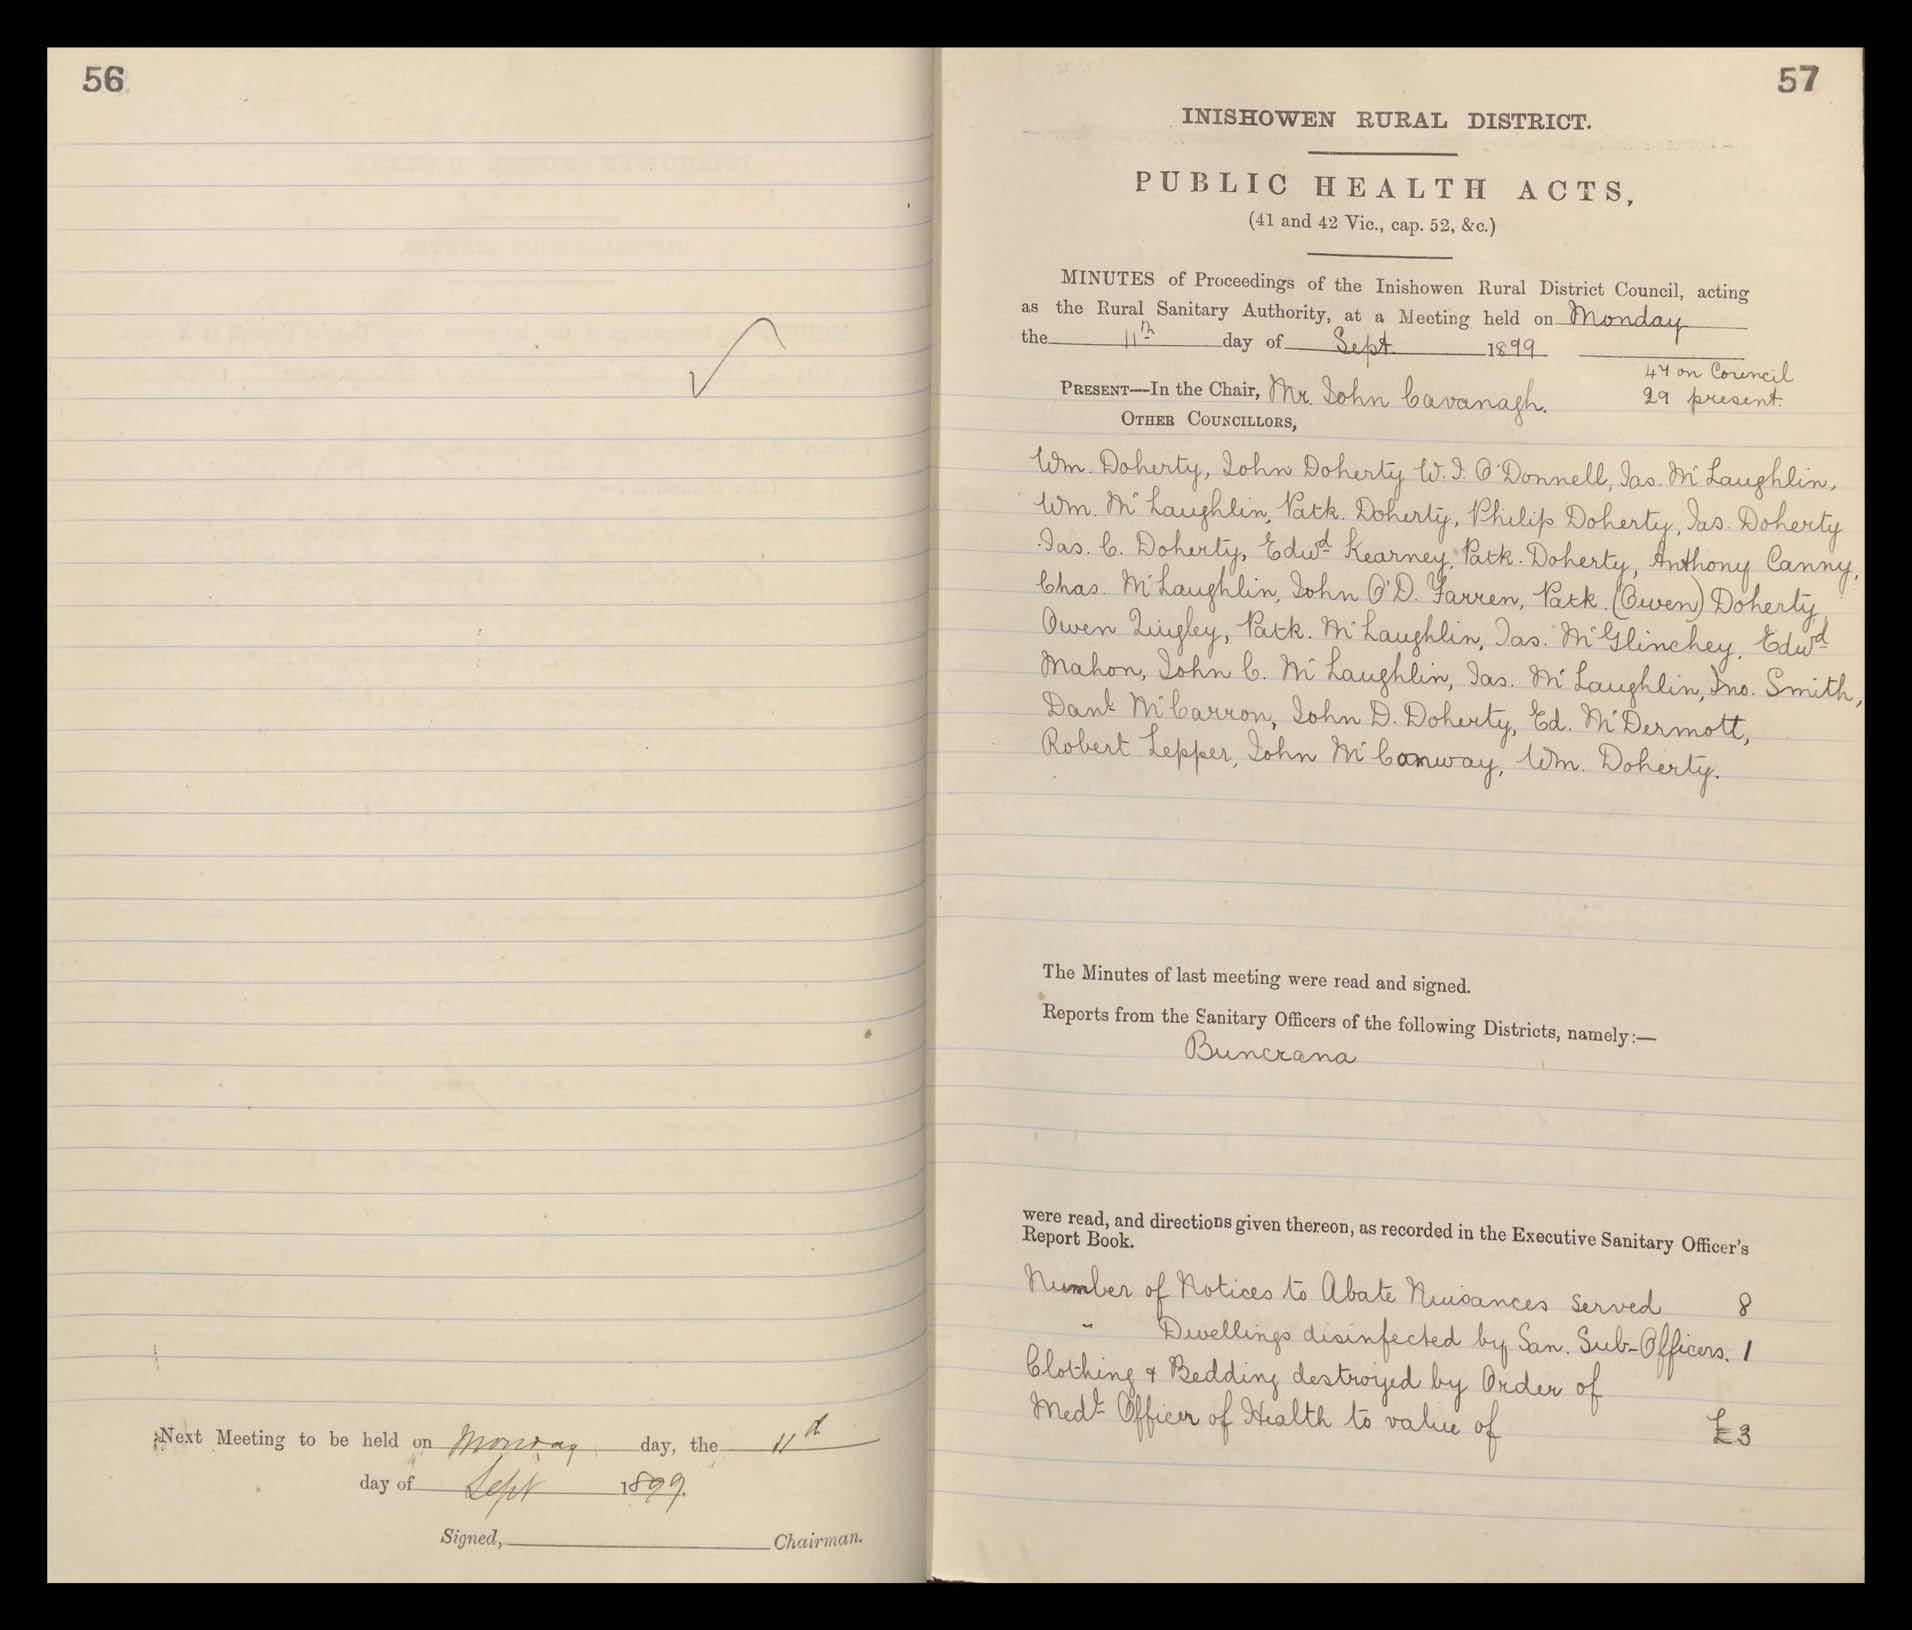 56
Next Meeting to be held on Monday day, the 11th
day of Sept 1899.
Signed, Chairman.
57
INISHOWEN RURAL DISTRICT.
PUBLIC HEALTH ACTS,
(41 and 42 Vic., cap. 52, &c.)
MINUTES of Proceedings of the Inishowen Rural District Council, acting
as the Rural Sanitary Authority, at a Meeting held on Monday
the 11th day of Sept. 1899
47 on Council
PRESENT—In the Chair, Mr. John Cavanagh. 29 present.
OTHER COUNCILLORS,
Wm. Doherty, John Doherty W. J. O'Donnell, Jas. McLaughlin,
Wm. McLaughlin, Patk. Doherty, Philip Doherty, Jas. Doherty
Jas. C. Doherty, Edwd Kearney, Patk. Doherty, Anthony Canny,
Chas. McLaughlin, John O'D. Farren, Patk. (Owen) Doherty,
Owen Quigley, Patk. McLaughlin, Jas. McGlinchey, Edwd
Mahon, John C. McLaughlin, Jas. McLaughlin, Jno. Smith,
Danl McCarron, John D. Doherty, Ed. McDermott,
Robert Lepper, John McConway, Wm. Doherty.
The Minutes of last meeting were read and signed.
Reports from the Sanitary Officers of the following Districts, namely:—
Buncrana
were read, and directions given thereon, as recorded in the Executive Sanitary Officer's
Report Book.
Number of Notices to Abate Nuisances served 8
" Dwellings disinfected by San. Sub-Officers. 1
Clothing & Bedding destroyed by Order of
Medl Officer of Health to value of £3